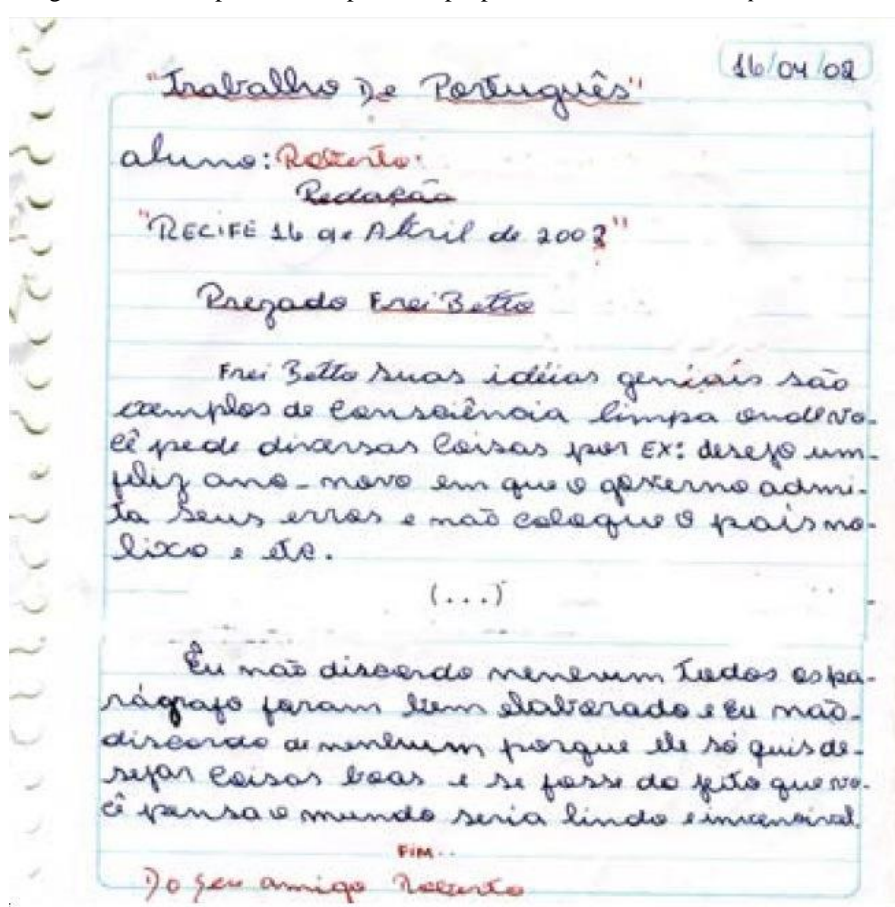 16/04/02
"Trabalho De Português"
aluno: Roberto.
Redação
"RECIFE 16 de Abril de 2002"
Prezado Frei Betto
Frei Betto suas idéias geniais são
exemplos de consciência limpa onde vo-
cê pede diversas coisas por EX: desejo um-
feliz ano-novo em que o governo admi-
ta seus erros e não coloque o país no-
lixo e etc.
(...)
Eu não discordo nenenum Todos os pa-
rágrafo foram bem elaborado e eu não-
discordo de nenhum porque ele só quis de-
sejar coisas boas e se fosse do jeito que vo-
cê pensa o mundo seria lindo e
FIM..
Do seu amigo Roberto